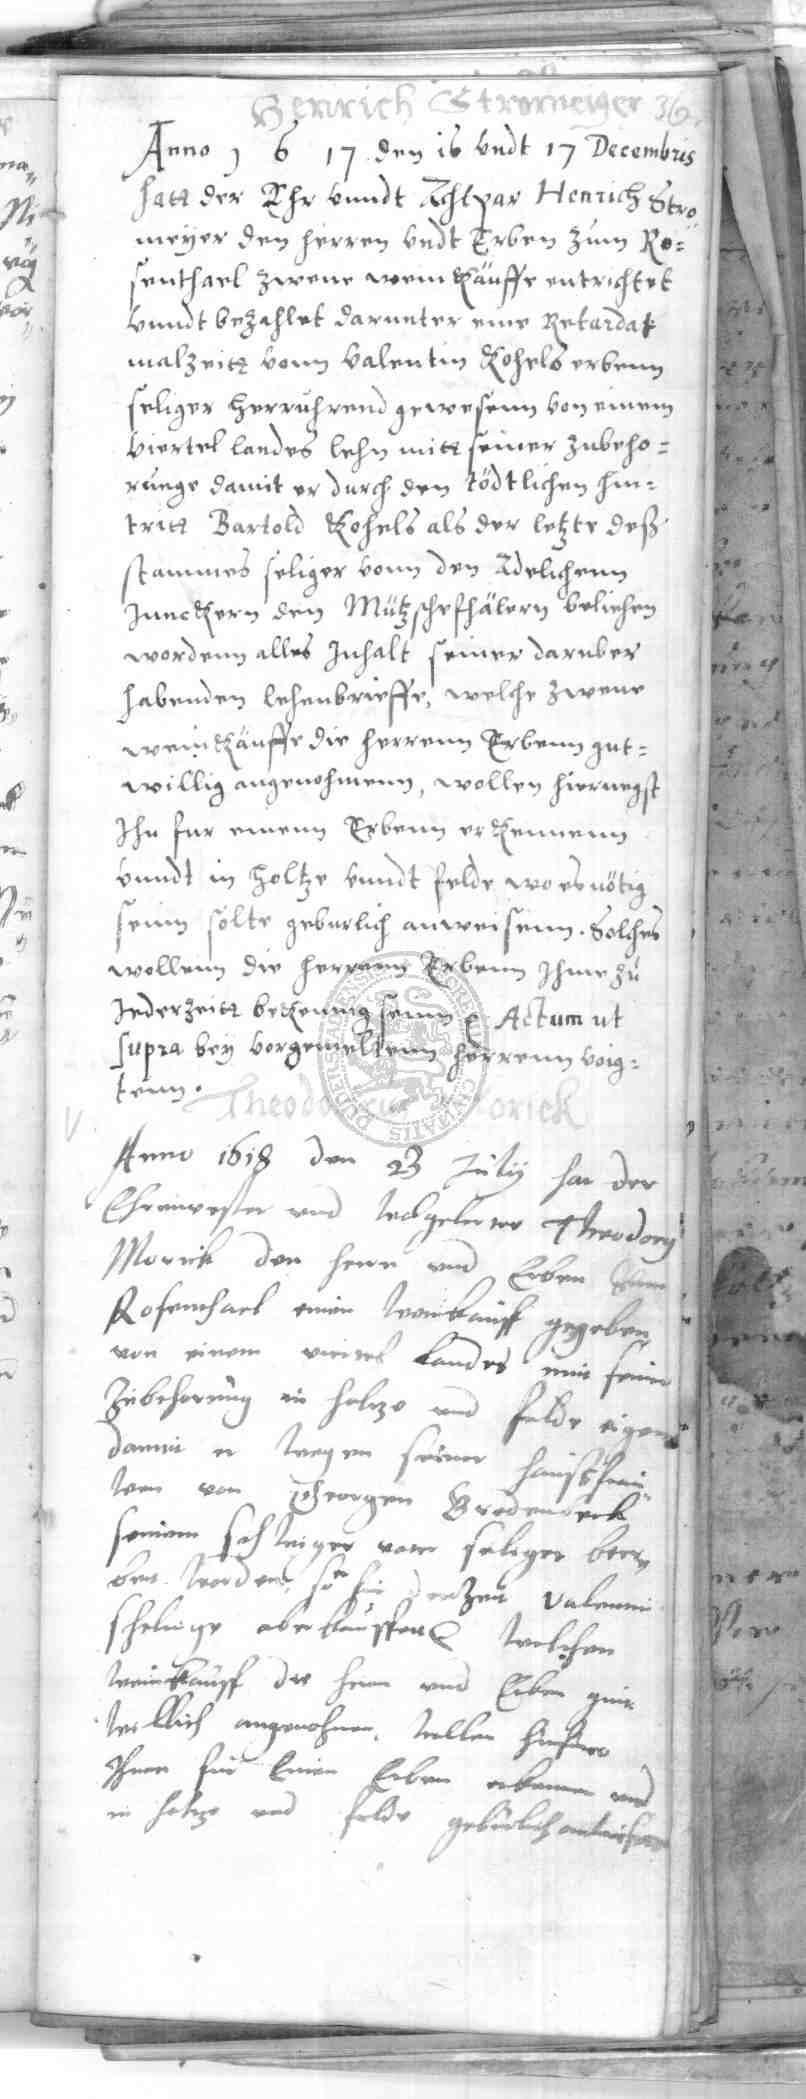 Henrich Stromeyer 36.
Anno 1617 den 16 vndt 17 Decembris
hatt der Ehr vnndt Achtpar Henrich Stro
meyer den herren vndt Erben zum Ro=
senthael zwene weinkäuffe entrichtet
vnndt bezahlet darunter eine Retardat
malzeitt vonn Valentin Kohels erbenn
seliger herruhrend gewesenn von einem
viertel landes lehn mitt seiner zubeho=
runge damit er durch den tödtlichen hin=
tritt Bartold Kohels als der letzte deß
stammes seliger vonn den Adelichenn
Junckern den Mützschefhälern beliehen
wordenn alles Inhalt seiner daruber
habenden lehenbrieffe, welche zwene
weinkäuffe die herrenn Erbenn gut=
willig angenohmenn, wollen hiernegst
Ihn fur einenn Erbenn erkennenn
vnndt in holtze vnndt felde wo es nötig
seinn solte geburlich anweisenn. Solches
wollenn die herrenn Erbenn Ihme zu
Jederzeitt bekennig seinn Actum ut
supra bey vorgemeltenn herrenn voig=
tenn.
Theodorus Moriek
Anno 1618 den 23 July hat der
Ehrnvester und wolgelerter Theodory
Morick den herrn und Erben zum
Rosenthael einen weinkauff gegeben
von einem viertel landes mitt seiner
Zubehorung in holtze und felde eigen
damit er wegen seiner haußfrau
wen von Georgen Bredenbeck
seinem schwieger vater seliger
worden, so hie derzeit Valentin
abekaufften welchen
weinkauff die herrn und Erben gut
willich angenohmen, wollen
Ihnen fur Einen Erben erkennen und
in holtze und felde geburlich anweisen